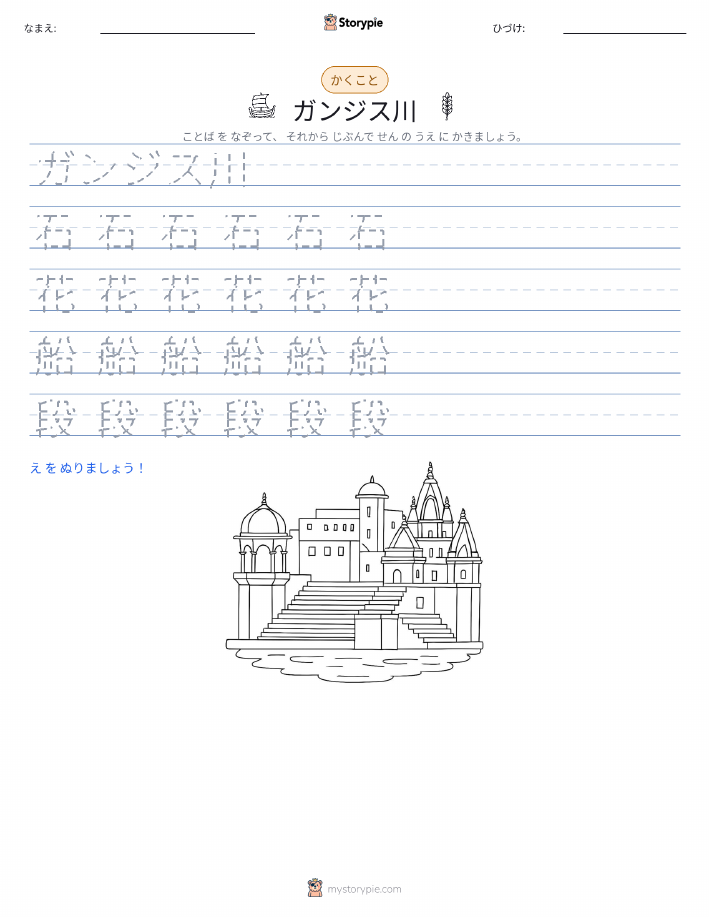 なまえ:
Storypie
ひづけ:
かくこと
ガンジス川
ことば を なぞって、 それから じぶんで せん の うえ に かきましょう。
ガンジス川
石 石 石 石 石 石
花 花 花 花 花 花
船 船 船 船 船 船
段 段 段 段 段 段
え を ぬりましょう！
mystorypie.com